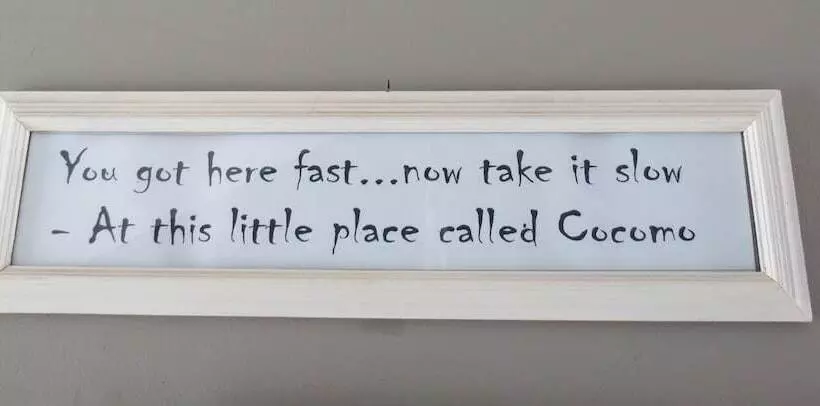 You got here fast...now take it slow
- At this little place called Cocomo